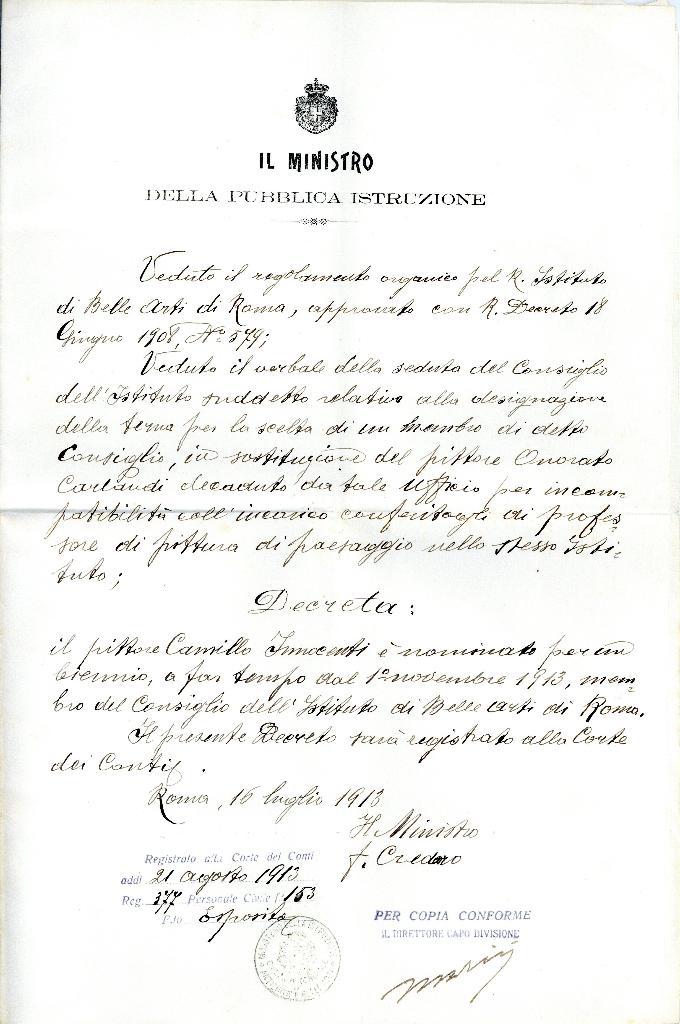 IL MINISTRO
DELLA PUBBLICA ISTRUZIONE
Veduto il regolamento organico pel R. Istituto
di Belle Arti di Roma, approvato con R. Decreto 18
Giugno 1908, No 579;
Veduto il verbale della seduta del Consiglio
dell'Istituto suddetto relativa alla designazione
della terna per la scelta di un membro di detto
Consiglio, in sostituzione del pittore Onorato
Carlandi decaduto da tale Ufficio per incom-
patibilità coll'incarico conferitogli di profes-
sore di pittura di paesaggio nello stesso Isti-
tuto;
Decreta:
il pittore Camillo Innocenti è nominato per un
biennio, a far tempo dal 1o novembre 1913, mem-
bro del Consiglio dell'Istituto di Belle Arti di Roma.
Il presente Decreto sarà registrato alla Corte
dei Conti.
Roma, 16 luglio 1913
Il Ministro
f. Credaro
Registrato alla Corte dei Conti
addì 21 agosto 1913
Reg. 377 Personale Civile f. 153
F.to Esposito
PER COPIA CONFORME
IL DIRETTORE CAPO DIVISIONE